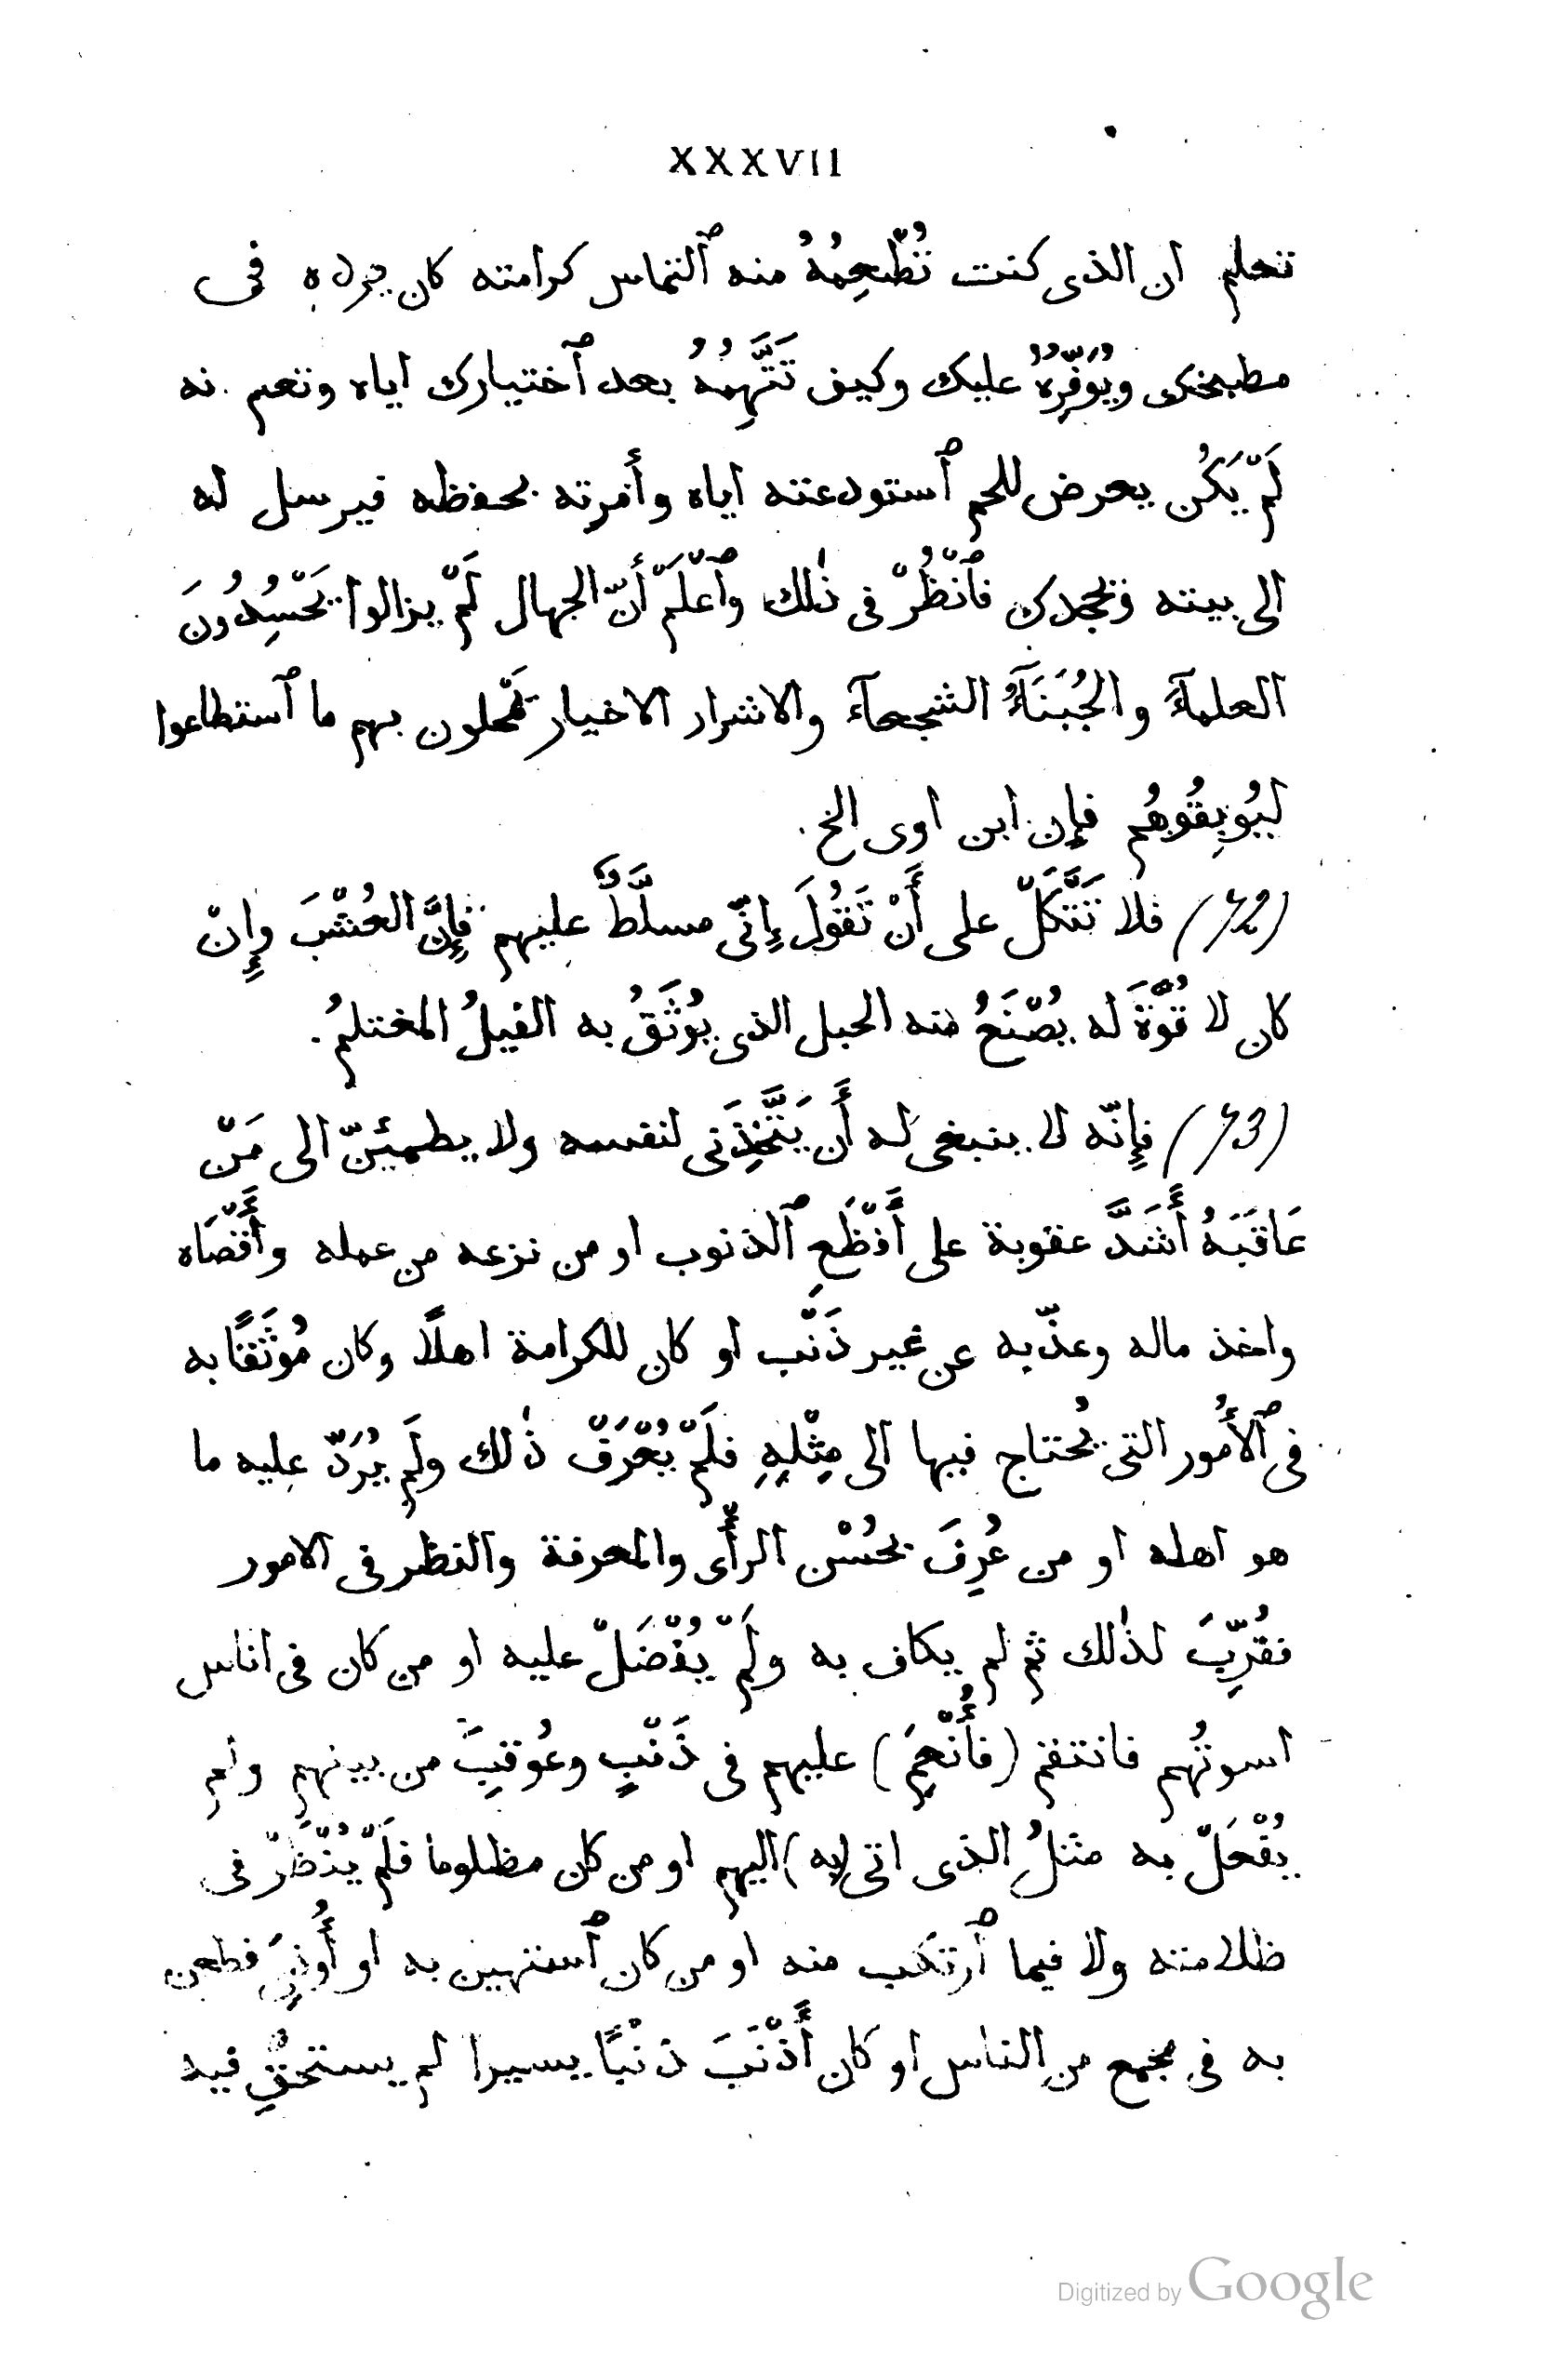 XXXVII
تعلم ان الذى كنت تُطْعِمُهُ منه ٱلتماس كرامته كان يرده فى
مطبخك ويُوَفِّرُهُ عليك وكيف تَتَّهِمُهُ بعد ٱختيارك اياه وتعم نه
لَمْ يَكُن يعرض للحم ٱستودعته اياه وأمرته بحفظه فيرسل له
الى بيته ويجحدك فٱنْظُرْ فى ذٰلك وٱعْلَمْ أَنّ الجهال لَمْ يزالوا يَحْسِدُونَ
العلمآءَ والجُبَنَآءُ الشجعآءَ والاشرار الاخيار يَمْحلون بهم ما ٱستطاعوا
ليُوبِقُوهُم فإن ابن اوى الخ.
(72) فلا تَتَّكِلْ على أَنْ تَقُولَ إنّى مسلَّطٌ عليهم فإِنَّ العُشْبَ وإِنْ
كان لا قُوَّةَ له يُصْنَعُ منه الحبل الذى يُوثَقُ به الفيلُ المختلمُ.
(73) فإِنّه لا ينبغى له أَن يَتَّخِذَنى لنفسه ولا يطمئِنّ الى مَنْ
عَاقَبَهُ أَشَدَّ عقوبة على أَفْظَعِ ٱلذنوب او من نزعه من عمله وأَقْصَاه
واخذ ماله وعذّبه عن غير ذَنْب او كان للكرامة اهلًا وكان مُوثَقًا به
فى ٱلأُمور التى يُحتاج فيها الى مِثْلِهِ فلَمْ يُعْرَفْ ذٰلك ولَم يُرَدّ عليه ما
هو اهله او من عُرِفَ بحُسْن الرأْى والمعرفة والنظر فى الامور
فقُرِّبَ لذٰلك ثم لم يكاف به ولَمْ يُفْضَلْ عليه او من كان فى اناس
اسوتُهم فانتقم (فأُنْعِمَ) عليهم فى ذَنْبٍ وعُوقِبَ من بينهم ولم
يُفْعَلْ به مثلُ الذى اتى (به) اليهم او من كان مظلوما فلَمْ يُنْظَرْ فى
ظلامته ولا فيما ٱرتكب منه او من كان ٱستهين به او أُوذِىَ فطعن
به فى مجمع من الناس او كان أَذْنَبَ ذنْبًا يسيرا لم يستحق فيه
Digitized by Google